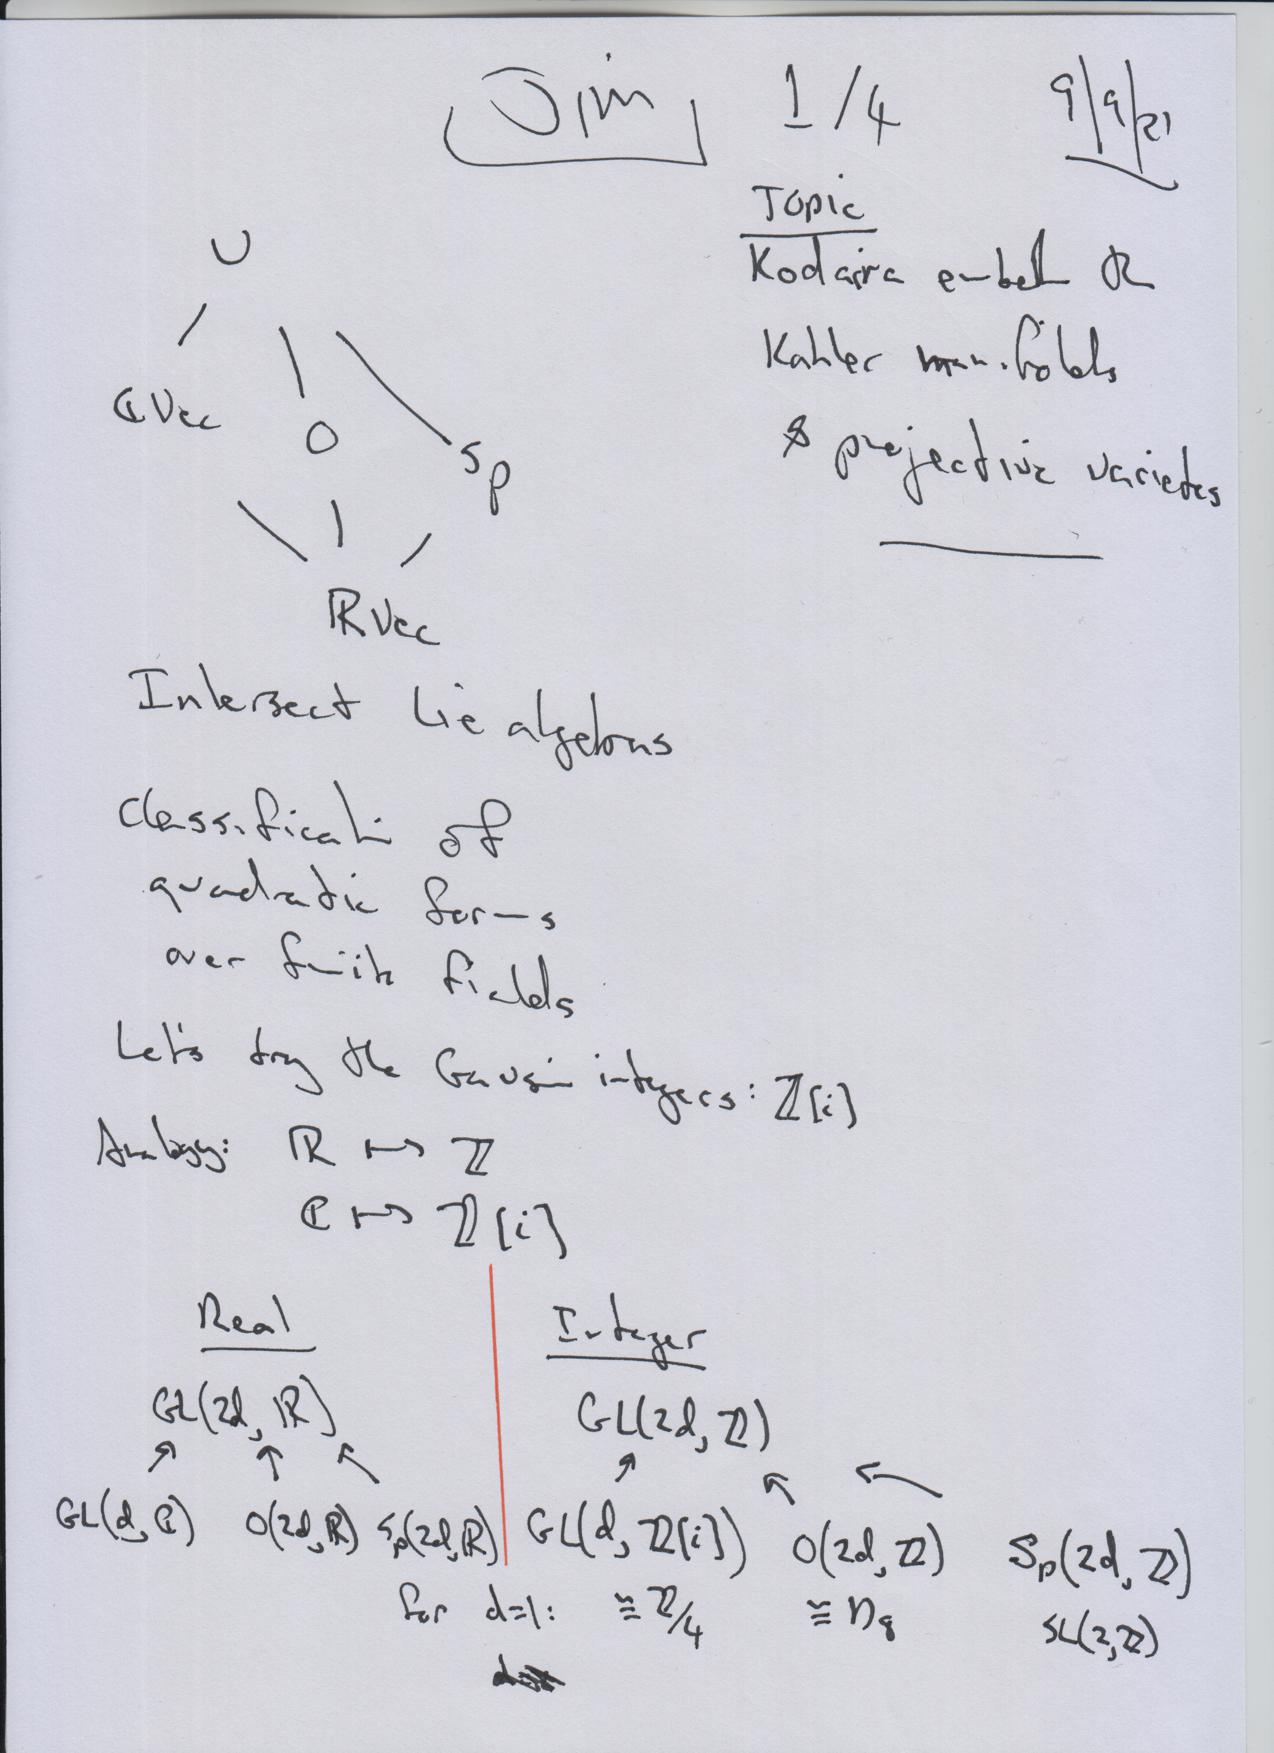 Jim 1/4 9/9/21
Topic
Kodaira embed th
Kahler manifolds
& projective varietes
U
ℂVec O Sp
ℝVec
Intersect Lie algebras
Classificati of
quadratic forms
over finite fields
Let's try the Gaussin integers: ℤ[i]
Analogy: ℝ ↦ ℤ
ℂ ↦ ℤ[i]
Real Integer
GL(2d, ℝ) GL(2d, ℤ)
GL(d, ℂ) O(2d, ℝ) Sp(2d, ℝ) GL(d, ℤ[i]) O(2d, ℤ) Sp(2d, ℤ)
for d=1: ≅ ℤ/4 ≅ D8 SL(2, ℤ)